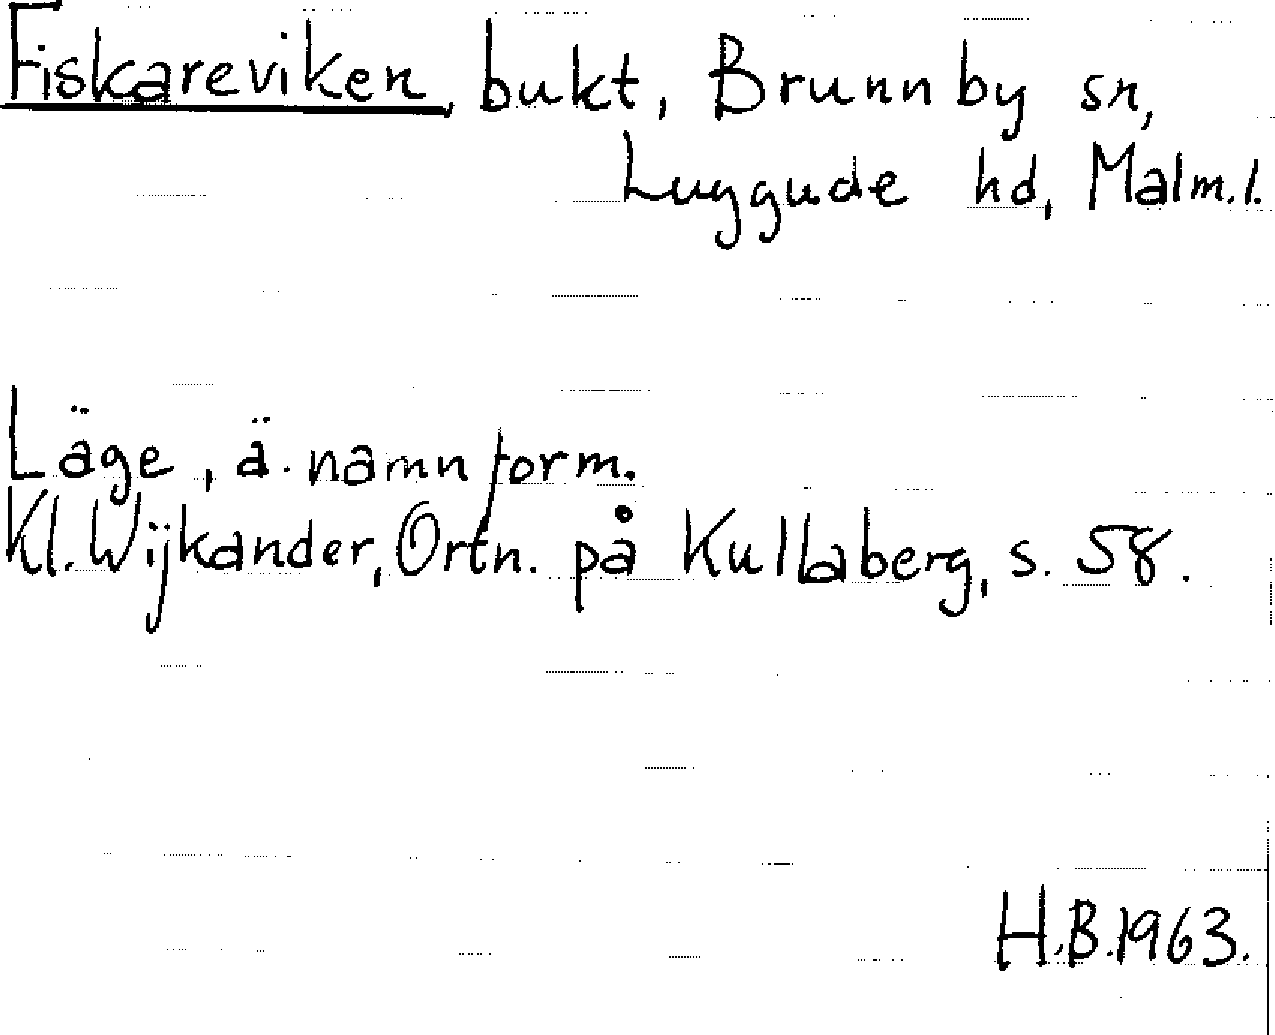 Fiskareviken, bukt, Brunnby sn,
Luggude hd, Malm.l.
Läge, ä. namnform.
Kl. Wijkander, Ortn. på Kullaberg, s. 58.
H.B.1963.